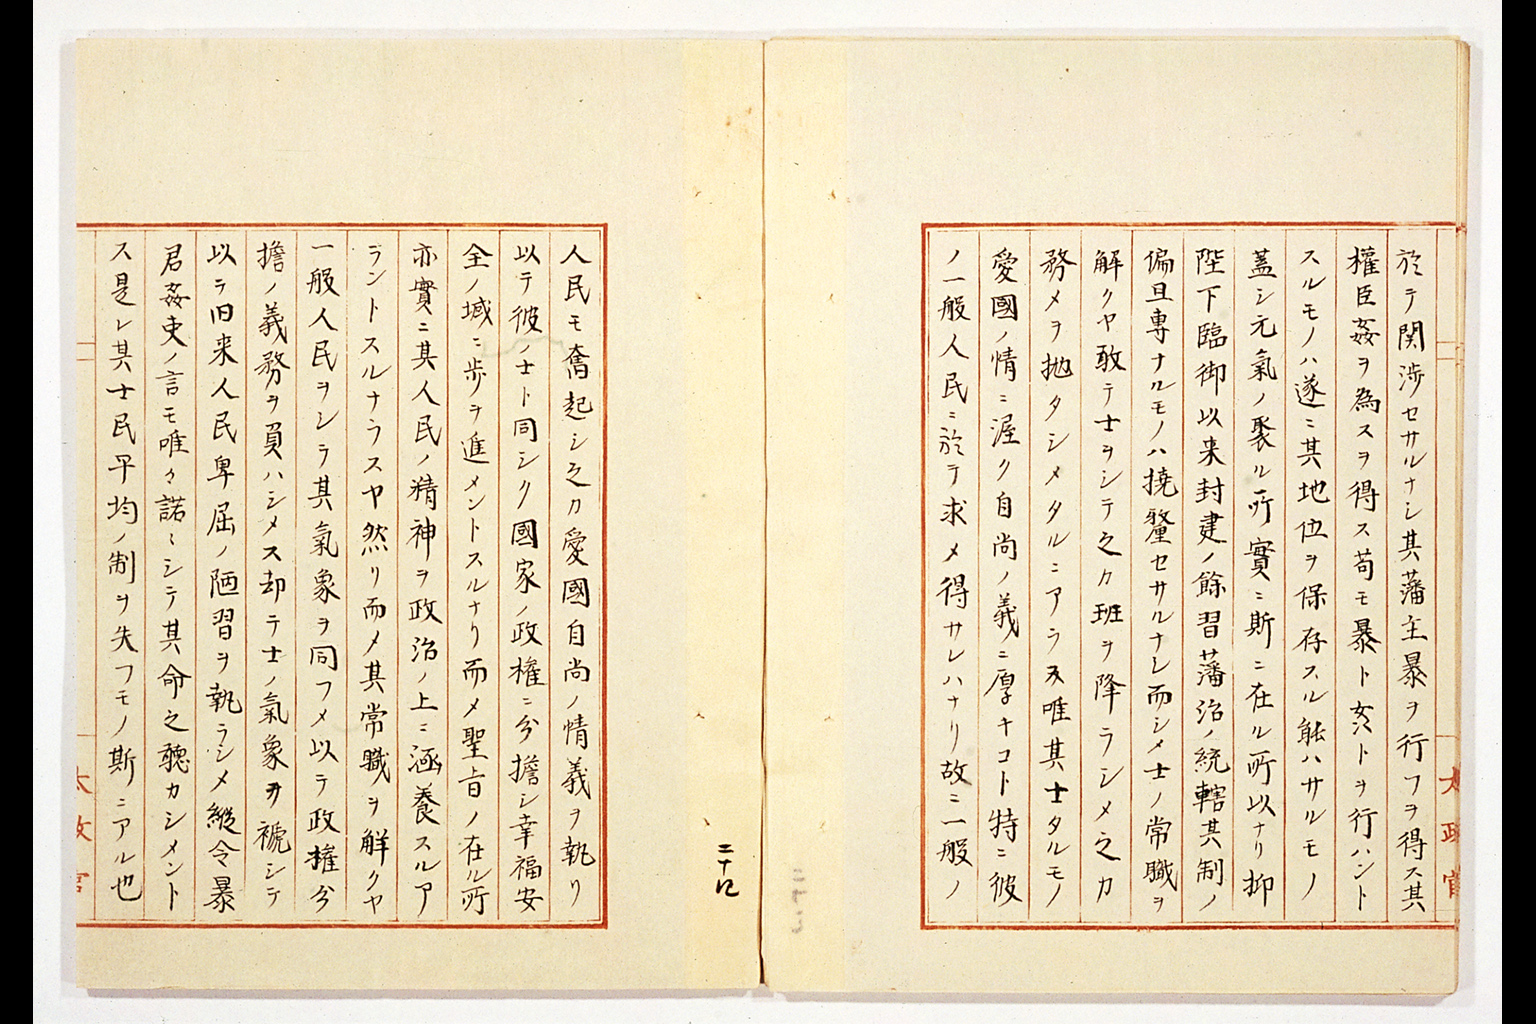 於テ関渉セサルナシ其藩主暴ヲ行フヲ得ス其
權臣姦ヲ為スヲ得ス苟モ暴ト姦トヲ行ハント
スルモノハ遂ニ其地位ヲ保存スル能ハサルモノ
蓋シ元氣ノ聚ル所實ニ斯ニ在ル所以ナリ抑
陛下臨御以来封建ノ餘習藩治ノ統轄其制ノ
偏旦専ナルモノハ撓釐セサルナシ而シメ士ノ常職ヲ
解クヤ敢テ士ヲシテ之カ班ヲ降ラシメ之カ
務メヲ拋タシメタルニアラス唯其士タルモノ
愛國ノ情ニ渥ク自尚ノ義ニ厚キコト特ニ彼
ノ一般人民ニ於テ求メ得サレハナリ故ニ一般ノ
人民モ奮起シ之カ愛國自尚ノ情義ヲ執リ
以テ彼ノ士ト同シク國家ノ政権ニ分擔シ幸福安
全ノ域ニ歩ヲ進メントスルナリ而メ聖旨ノ在ル所
亦實ニ其人民ノ精神ヲ政治ノ上ニ涵養スルア
ラントスルナラスヤ然リ而メ其常職ヲ解クヤ
一般人民ヲシテ其氣象ヲ同フメ以テ政権分
擔ノ義務ヲ負ハシメス却テ士ノ氣象ヲ褫シテ
以テ旧来人民卑屈ノ陋習ヲ執ラシメ縦令暴
君姦吏ノ言モ唯々諾〻シテ其命之聴カシメント
ス是レ其士民平均ノ制ヲ失フモノ斯ニアル也
太政官
太政官